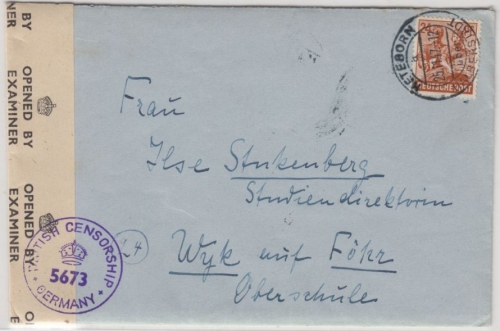 OPENED BY
EXAMINER
OPENED BY
EXAMINER
BRITISH CENSORSHIP
5673
GERMANY
24
DEUTSCHE POST
Frau
Ilse Stukenberg
Studiendirektorin
Wyk auf Föhr
Oberschule